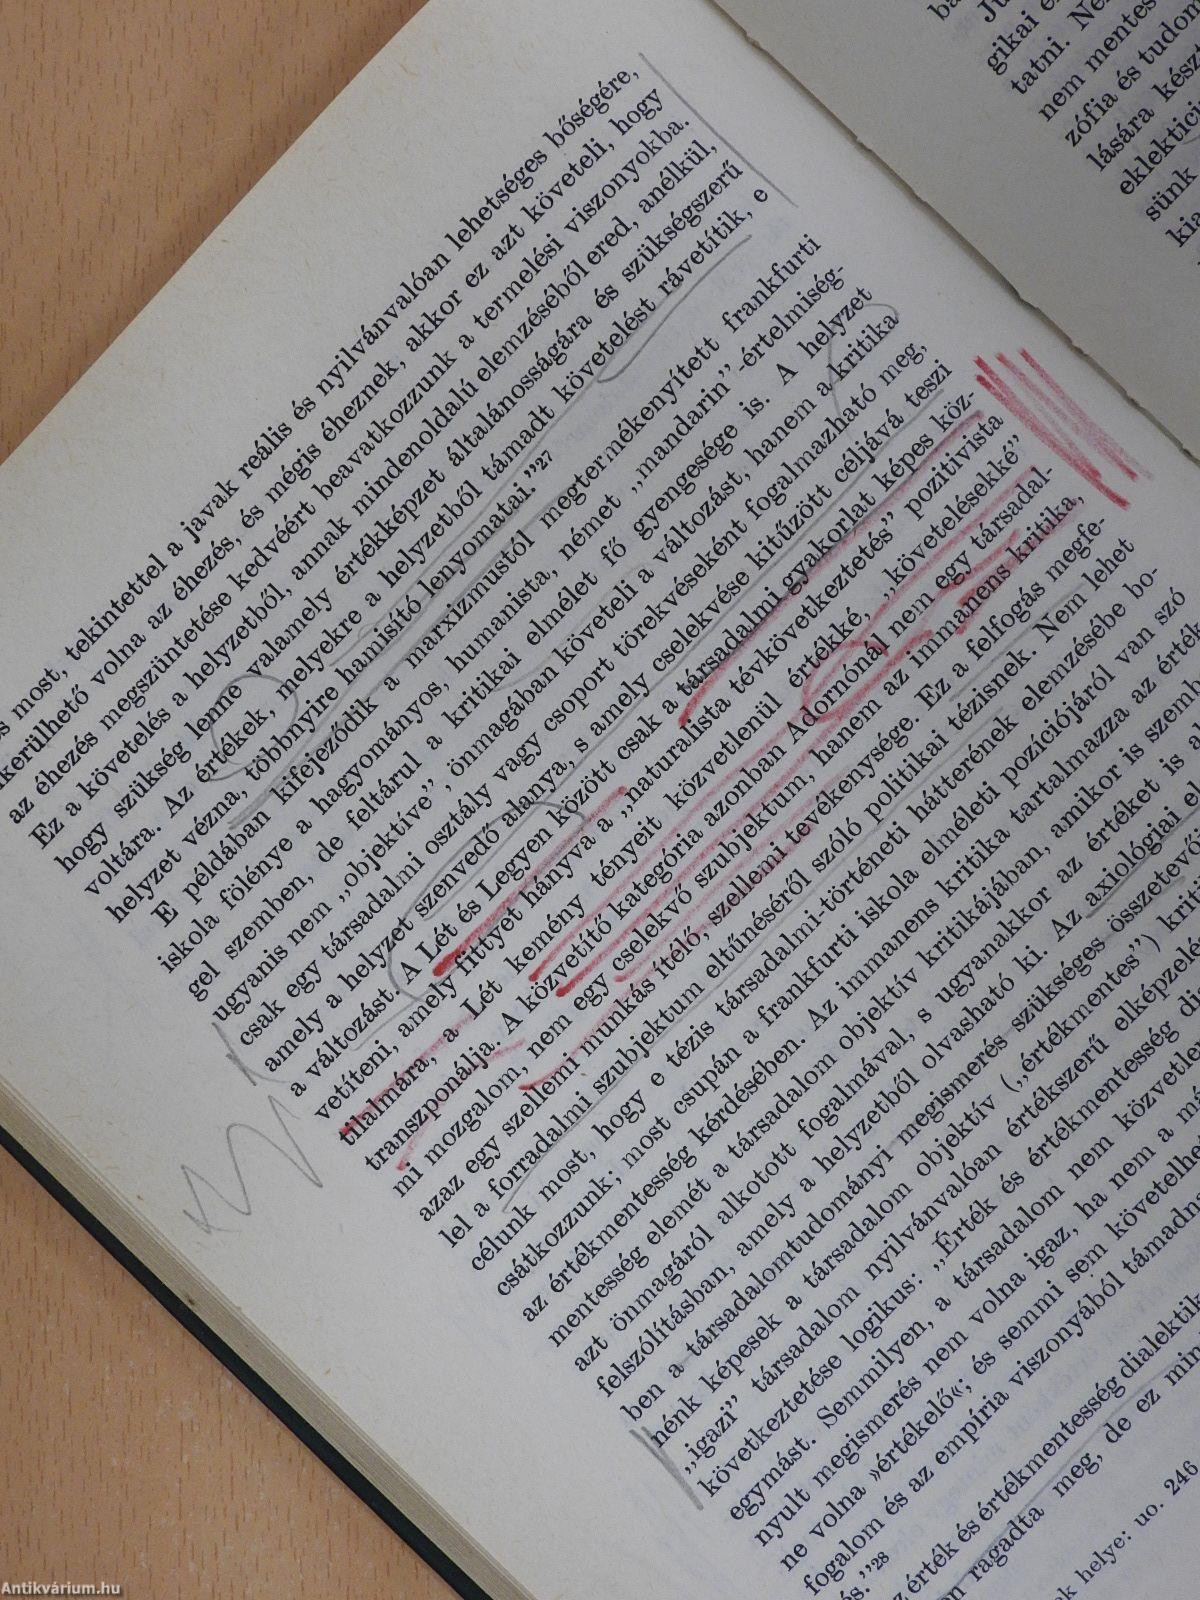 s most, tekintettel a javak reális és nyilvánvalóan lehetséges bőségére,
kerülhető volna az éhezés, és mégis éheznek, akkor ez azt követeli, hogy
az éhezés megszüntetése kedvéért beavatkozzunk a termelési viszonyokba.
Ez a követelés a helyzetből, annak mindenoldalú elemzéséből ered, anélkül,
hogy szükség lenne valamely értékképzet általánosságára és szükségszerű
voltára. Az értékek, melyekre a helyzetből támadt követelést rávetítik, e
helyzet vézna, többnyire hamisító lenyomatai."27
E példában kifejeződik a marxizmustól megtermékenyített frankfurti
iskola fölénye a hagyományos, humanista, német „mandarin"-értelmiség-
gel szemben, de feltárul a kritikai elmélet fő gyengesége is. A helyzet
ugyanis nem „objektíve", önmagában követeli a változást, hanem a kritika
csak egy társadalmi osztály vagy csoport törekvéseként fogalmazható meg,
amely a helyzet szenvedő alanya, s amely cselekvése kitűzött céljává teszi
a változást. A Lét és Legyen között csak a társadalmi gyakorlat képes köz-
vetíteni, amely fittyet hányva a „naturalista tévkövetkeztetés" pozitivista
tilalmára, a Lét kemény tényeit közvetlenül értékké, „követelésekké"
transzponálja. A közvetítő kategória azonban Adornónál nem egy társadal-
mi mozgalom, nem egy cselekvő szubjektum, hanem az immanens kritika,
azaz egy szellemi munkás ítélő, szellemi tevékenysége. Ez a felfogás megfe-
lel a forradalmi szubjektum eltűnéséről szóló politikai tézisnek. Nem lehet
célunk most, hogy e tézis társadalmi-történeti hátterének elemzésébe bo-
csátkozzunk; most csupán a frankfurti iskola elméleti pozíciójáról van szó
az értékmentesség kérdésében. Az immanens kritika tartalmazza az érték
mentesség elemét a társadalom objektív kritikájában, amikor is szemb
azt önmagáról alkotott fogalmával, s ugyanakkor az értéket is a
felszólításban, amely a helyzetből olvasható ki. Az axiológiai el
ben a társadalomtudományi megismerés szükséges összetevő
nénk képesek a társadalom objektív („értékmentes") kriti
„igazi" társadalom nyilvánvalóan értékszerű elképzelé
következtetése logikus: „Érték és értékmentesség di
egymást. Semmilyen, a társadalom nem közvetle
nyult megismerés nem volna igaz, ha nem a má
ne volna »értékelő«; és semmi sem követelhe
fogalom és az empíria viszonyából támadn
és."28
érték és értékmentesség dialektik
en ragadta meg, de ez min
ak helye: uo. 246
ba
Ju
gikai e
tatni. Ne
nem mentes
zófia és tudom
lására készt
eklektici
sünk
kia
Antikvárium.hu